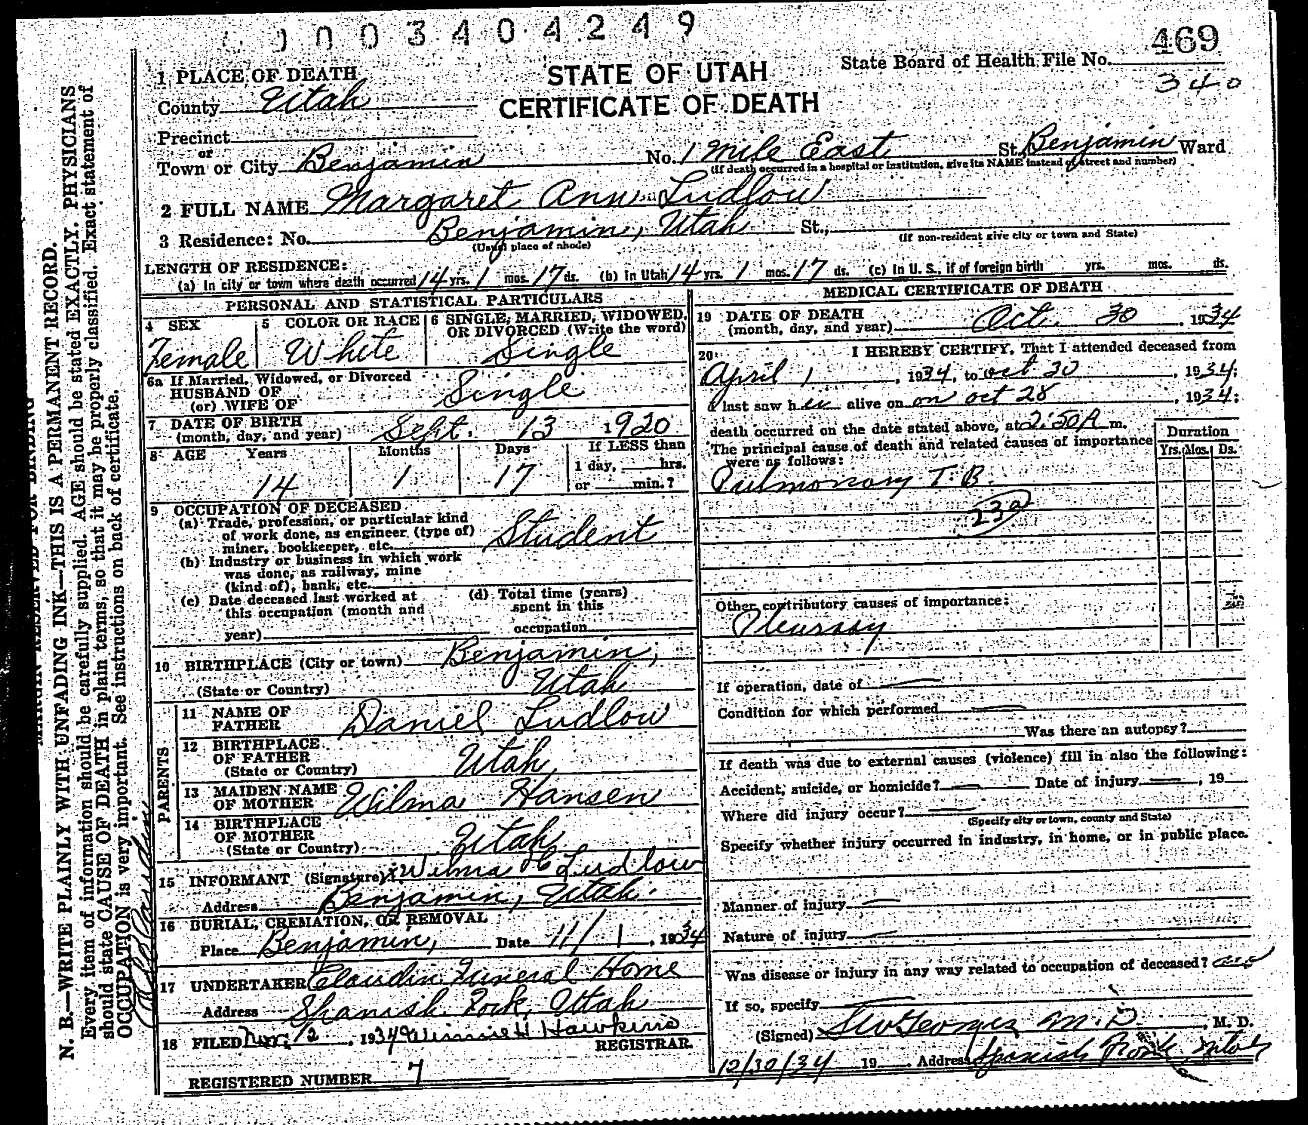 1003404249
469
STATE OF UTAH
State Board of Health File No.
340
CERTIFICATE OF DEATH
1 PLACE OF DEATH
County Utah
Precinct
or
Town or City Benjamin No. 1 Mile East St. Benjamin Ward
(If death occurred in a hospital or institution, give its NAME instead of street and number)
2 FULL NAME Margaret Ann Ludlow
3 Residence: No. Benjamin, Utah St.,
(Usual place of abode) (If non-resident give city or town and State)
LENGTH OF RESIDENCE:
(a) In city or town where death occurred 14 yrs. 1 mos. 17 ds. (b) In Utah 14 yrs. 1 mos. 17 ds. (c) In U. S., if of foreign birth yrs. mos. ds.
PERSONAL AND STATISTICAL PARTICULARS
4 SEX Female
5 COLOR OR RACE White
6 SINGLE, MARRIED, WIDOWED, OR DIVORCED (Write the word) Single
6a If Married, Widowed, or Divorced
HUSBAND OF
(or) WIFE OF Single
7 DATE OF BIRTH
(month, day, and year) Sept. 13 1920
8 AGE Years Months Days If LESS than
14 1 17 1 day, hrs.
or min.?
9 OCCUPATION OF DECEASED
(a) Trade, profession, or particular kind
of work done, as engineer (type of)
miner, bookkeeper, etc. Student
(b) Industry or business in which work
was done, as railway, mine
(kind of), bank, etc.
(c) Date deceased last worked at
this occupation (month and
year)
(d) Total time (years)
spent in this
occupation
10 BIRTHPLACE (City or town) Benjamin,
(State or Country) Utah
PARENTS
11 NAME OF
FATHER Daniel Ludlow
12 BIRTHPLACE
OF FATHER
(State or Country) Utah
13 MAIDEN NAME
OF MOTHER Wilma Hansen
14 BIRTHPLACE
OF MOTHER
(State or Country) Utah
15 INFORMANT (Signature) Wilma H Ludlow
Address Benjamin, Utah.
16 BURIAL, CREMATION, OR REMOVAL
Place Benjamin, Date 11/1, 1934
17 UNDERTAKER Claudin Funeral Home
Address Spanish Fork, Utah
18 FILED Nov. 2, 1934 Winnie H Hawkins
REGISTRAR.
REGISTERED NUMBER 7
MEDICAL CERTIFICATE OF DEATH
19 DATE OF DEATH
(month, day, and year) Oct. 30, 1934
20 I HEREBY CERTIFY, That I attended deceased from
April 1, 1934, to Oct 20, 1934;
I last saw her alive on on Oct 28, 1934;
death occurred on the date stated above, at 2:50A m.
The principal cause of death and related causes of importance
were as follows:
Duration
Yrs. Mos. Ds.
Pulmonary T.B.
Other contributory causes of importance:
Pleurasy
If operation, date of
Condition for which performed
Was there an autopsy?
If death was due to external causes (violence) fill in also the following:
Accident, suicide, or homicide? Date of injury, 19
Where did injury occur?
(Specify city or town, county and State)
Specify whether injury occurred in industry, in home, or in public place.
Manner of injury
Nature of injury
Was disease or injury in any way related to occupation of deceased?
If so, specify
(Signed) M.D., M. D.
12/30/34 19 Address Spanish Fork, Utah
MARGIN RESERVED FOR BINDING
N. B.—WRITE PLAINLY WITH UNFADING INK—THIS IS A PERMANENT RECORD.
Every item of information should be carefully supplied. AGE should be stated EXACTLY. PHYSICIANS
should state CAUSE OF DEATH in plain terms, so that it may be properly classified. Exact statement of
OCCUPATION is very important. See instructions on back of certificate.